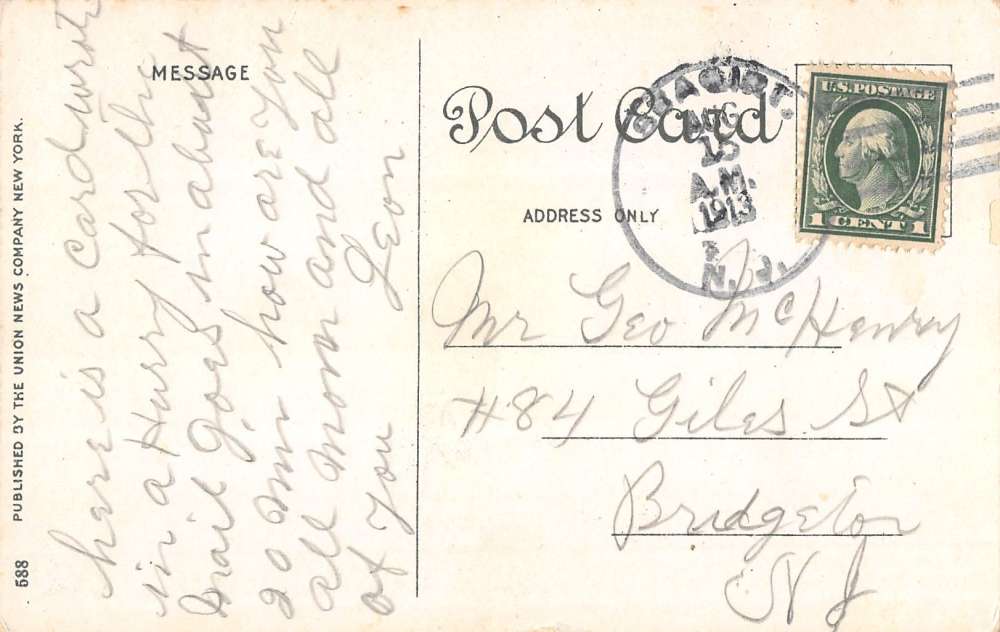 MESSAGE
here is a card wrote
in a Hurry for the
mail goes in about
20 min how are You
all mom and all
of You Leon
PUBLISHED BY THE UNION NEWS COMPANY NEW YORK.
588
Post Card
ADDRESS ONLY
SEA GIRT.
AUG
15
A.M.
1913
N.J.
U.S. POSTAGE
1 CENT 1
Mr Geo McHenry
#84 Giles St
Bridgeton
N J